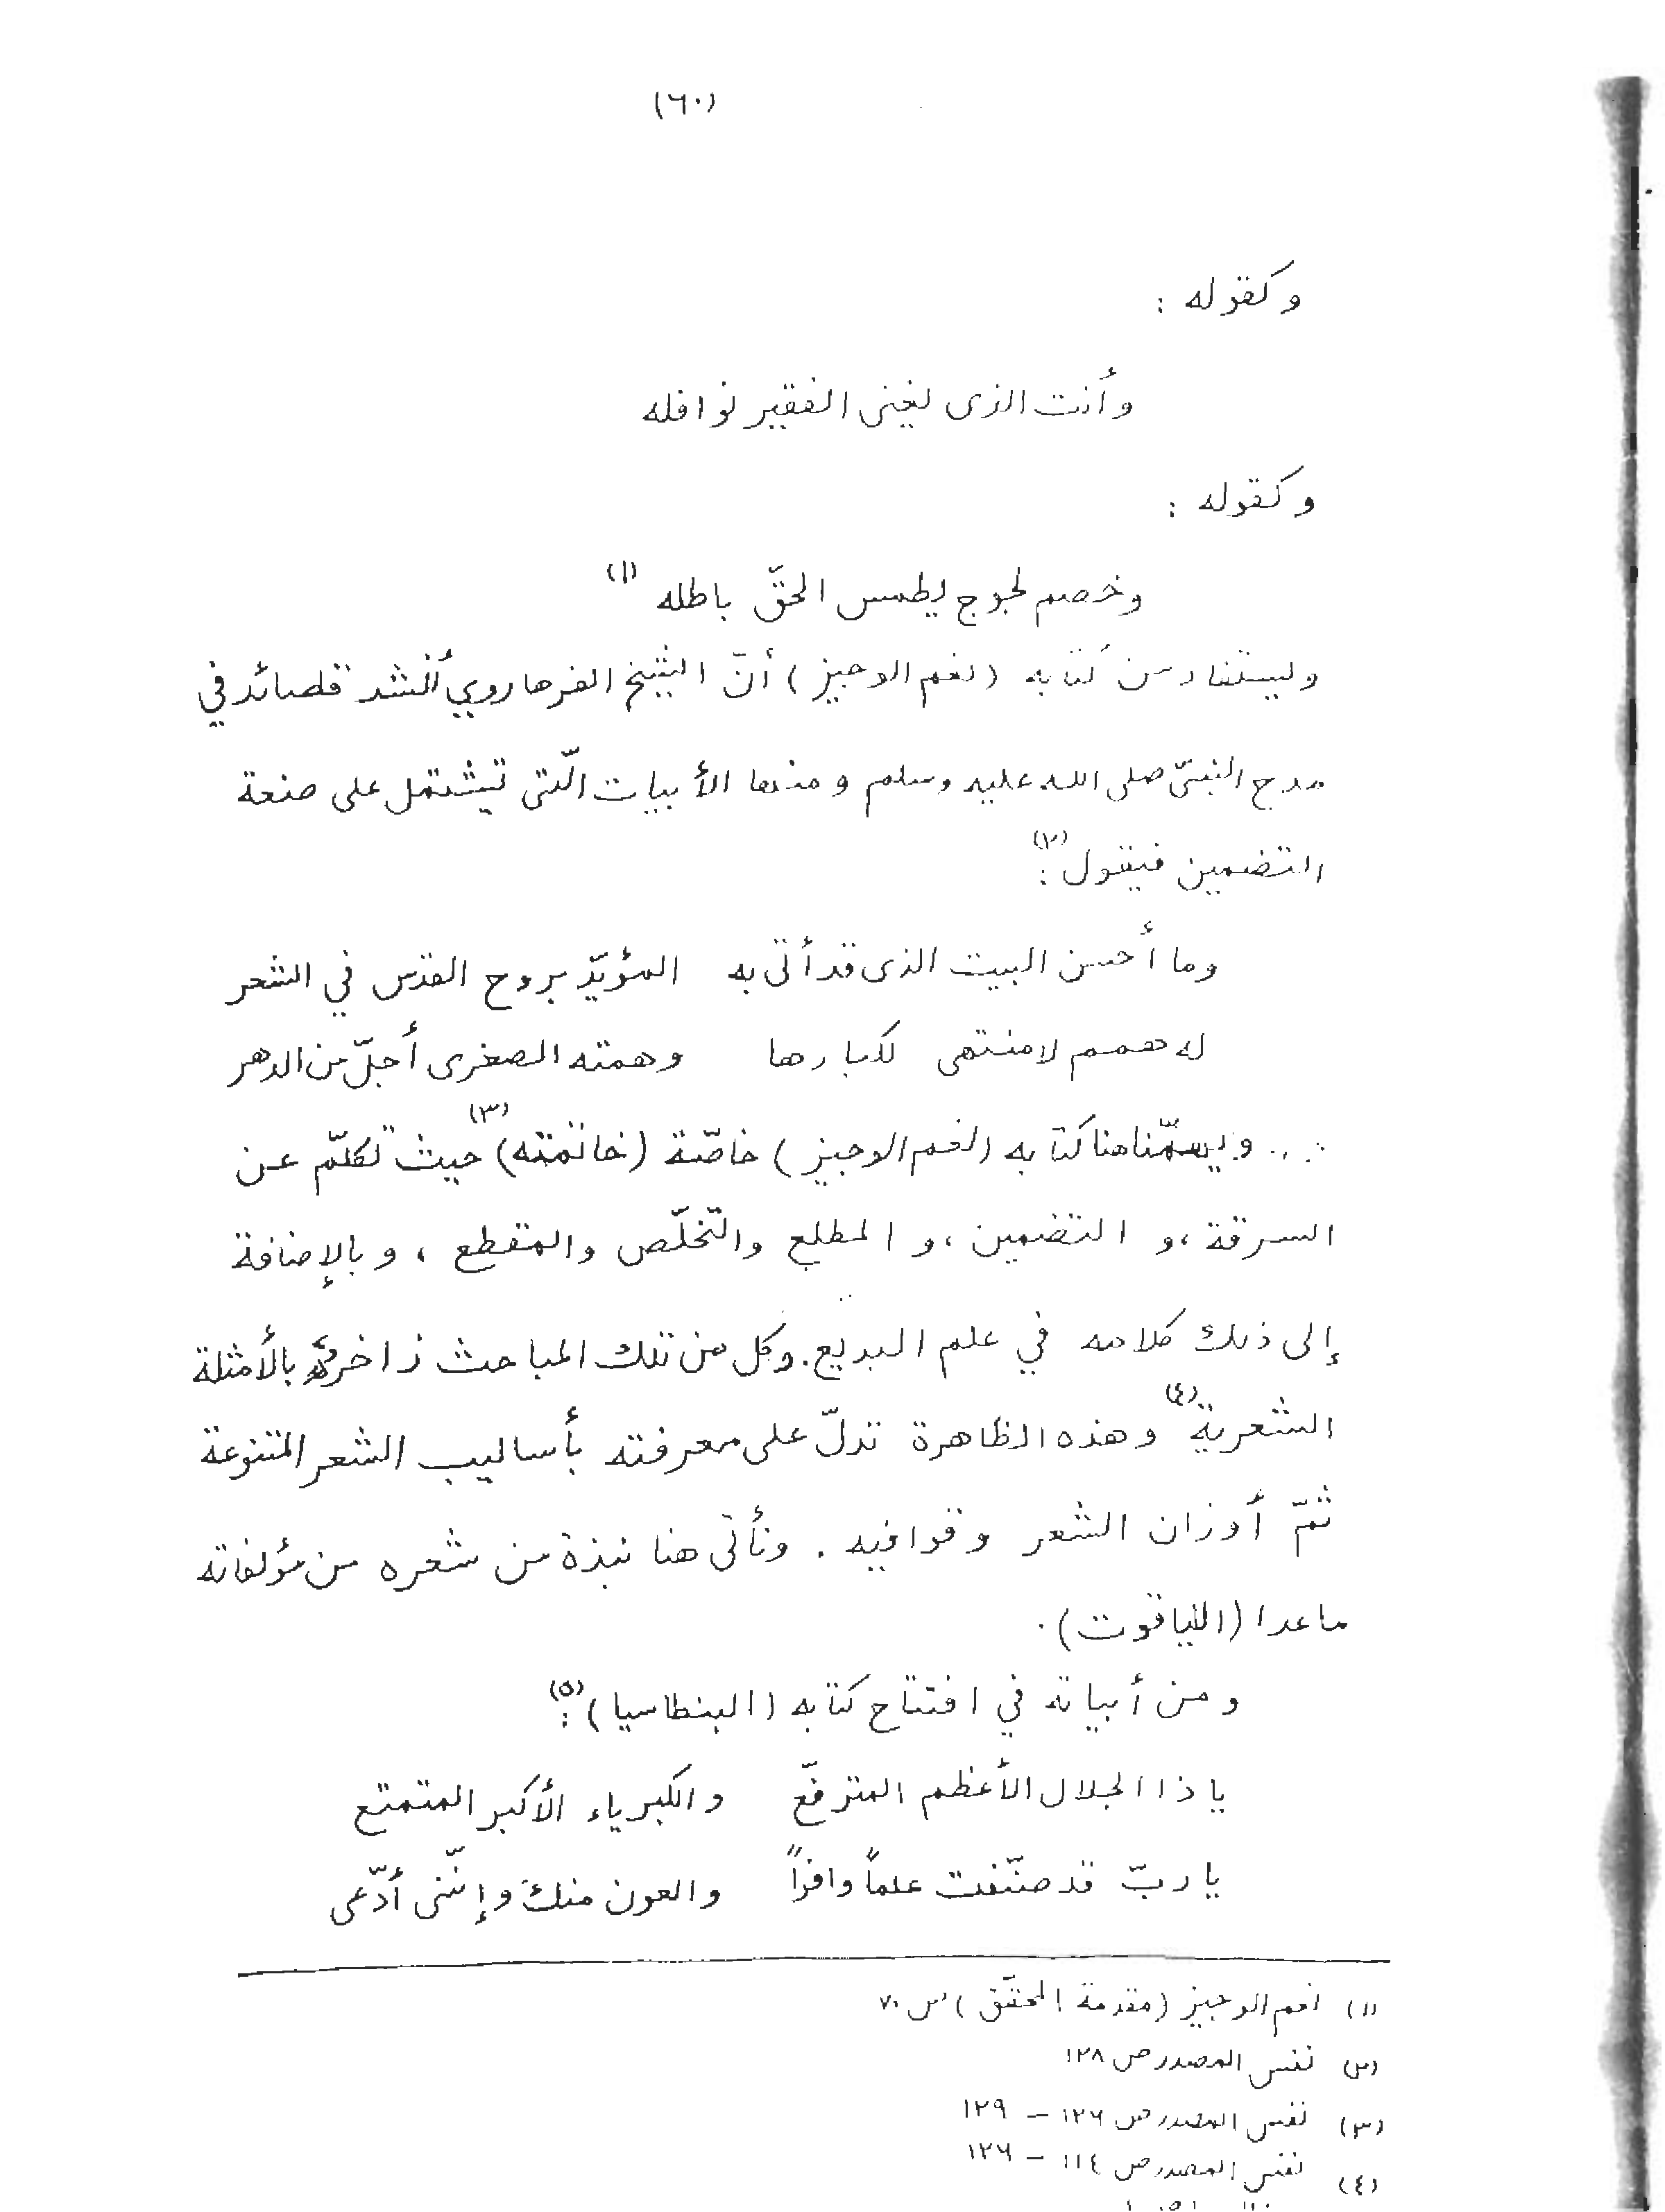 (٦٠)
وكقوله :
وأنت الذى يغنى الفقير نوافله
وكقوله :
وخصم لجوج يطمس الحقّ باطله (١)
ويستفاد من كتابه (نعم الوجيز) أنّ الشيخ الفرهاروي أنشد قصائد في
مدح النبيّ صلى الله عليه وسلم ومنها الأبيات الّتى تشتمل على صنعة
التضمين فيقول (٢) :
وما أحسن البيت الذى قد أتى به المؤيّد بروح القدس في الشعر
له همم لا منتهى لكبارها وهمته الصغرى أجلّ من الدهر
ويهمّنا هنا كتابه (نعم الوجيز) خاصّة (خاتمته) (٣) حيث تكلّم عن
السرقة ، و التضمين ، و المطلع والتّخلّص والمقطع ، وبالإضافة
إلى ذلك كلامه في علم البديع . وكل من تلك المباحث زاخرة بالأمثلة
الشعرية (٤) وهذه الظاهرة تدلّ على معرفته بأساليب الشعر المتنوعة
ثمّ أوزان الشعر وقوافيه . ونأتى هنا نبذة من شعره من مؤلفاته
ماعدا (الياقوت) .
ومن أبياته في افتتاح كتابه (البنطاسيا) (٥) :
يا ذا الجلال الأعظم المترفّع والكبرياء الأكبر المتمتع
يا ربّ قد صنّفت علماً وافراً والعون منكَ وإنّنى أدّعى
(١) نعم الوجيز (مقدمة المحقّق) ص ٧٠
(٢) نفس المصدر ص ١٢٨
(٣) نفس المصدر ص ١٢٦ – ١٢٩
(٤) نفس المصدر ص ١١٤ – ١٢٦